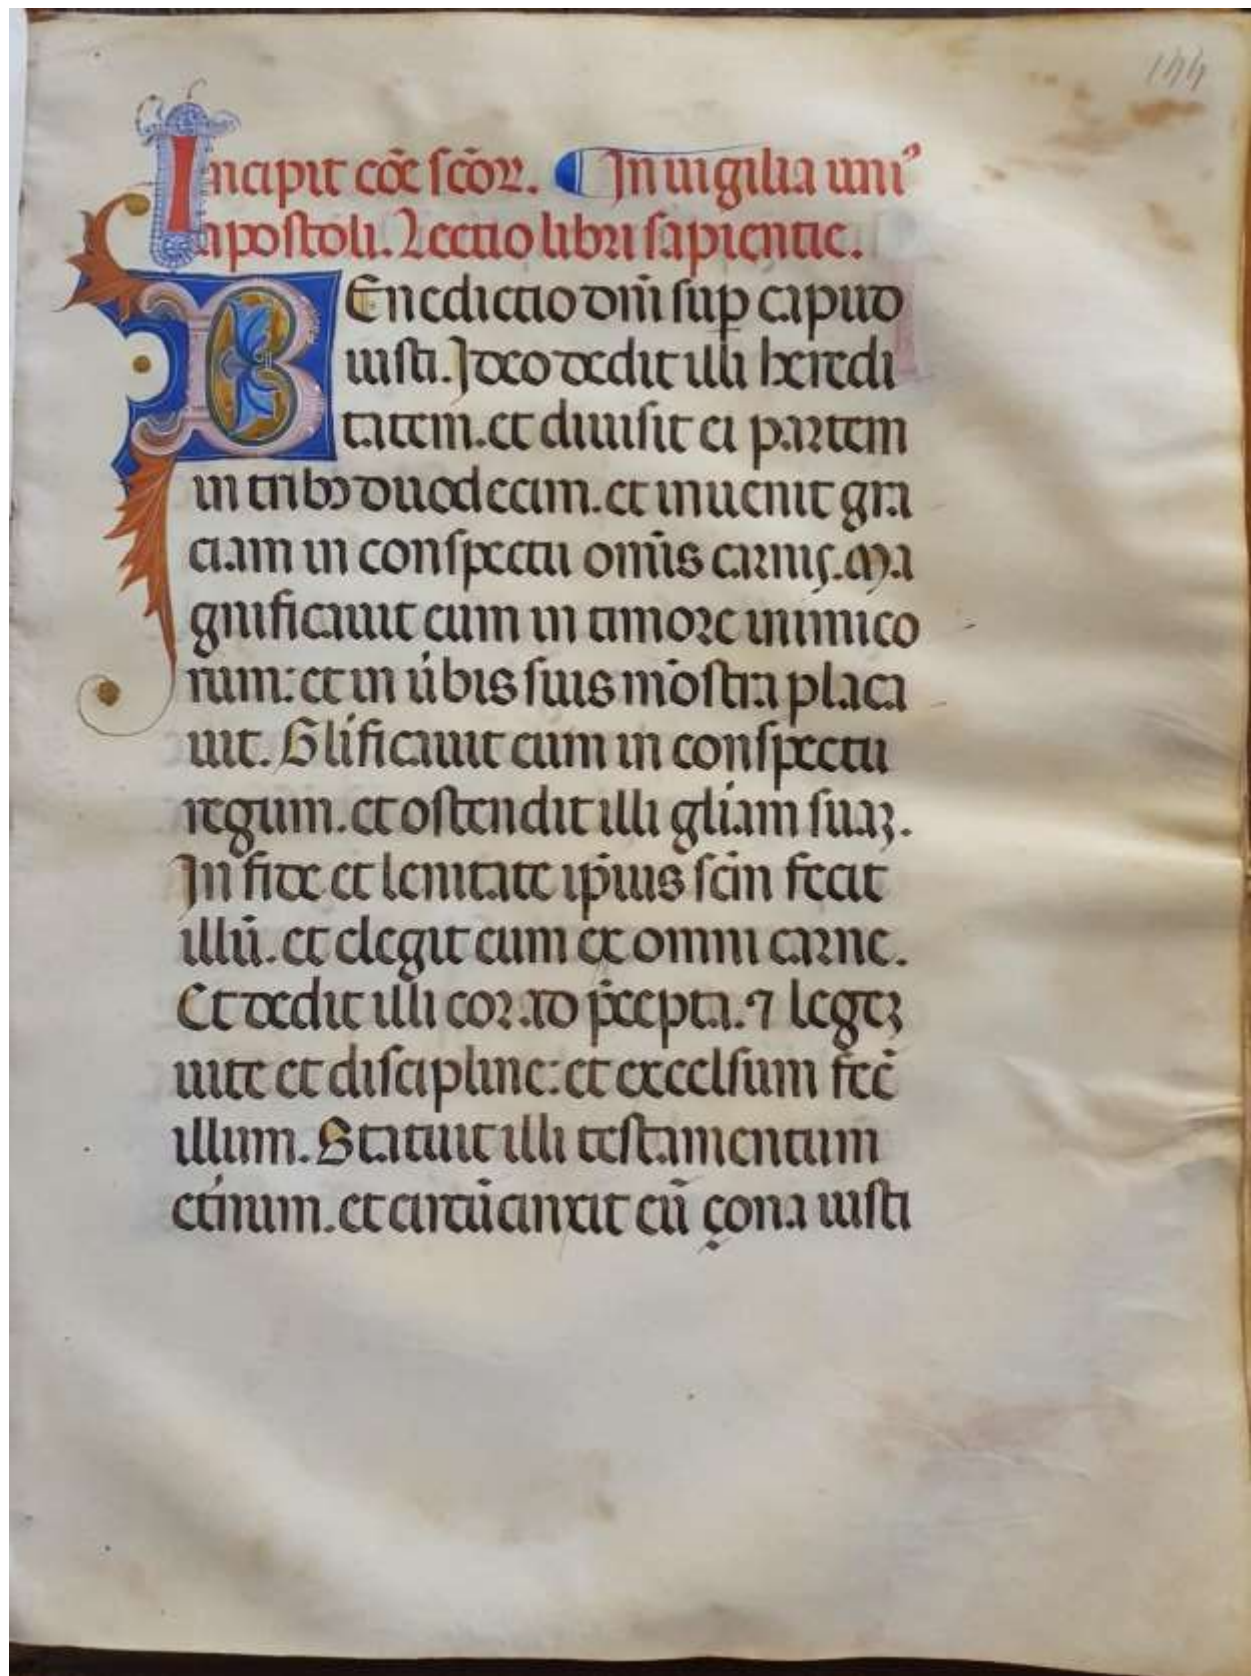 144
Incipit cōe scōꝝ. In uigilia uniꝰ
apostoli. Lectio libri sapientie.
BEnedictio dn̄i suꝑ capud
iusti. Ideo dedit illi heredi
tatem. et diuisit ei partem
in tribꝫ duodecim. et inuenit gra
ciam in conspectu om̄is carnis. Ma
gnificauit eum in timore inimico
rum: et in u̇bis suis mōstra placa
uit. Gl̄ificauit eum in conspectu
regum. et ostendit illi gl̄iam suaꝫ.
In fide et lenitate ip̄ius sc̄m fecit
illū. et elegit eum ex omni carne.
Et dedit illi cor ad p̄cepta. ⁊ legeꝫ
uite et discipline: et excelsum fec̄
illum. Statuit illi testamentum
et̄num. et circūcinxit eū çona iusti